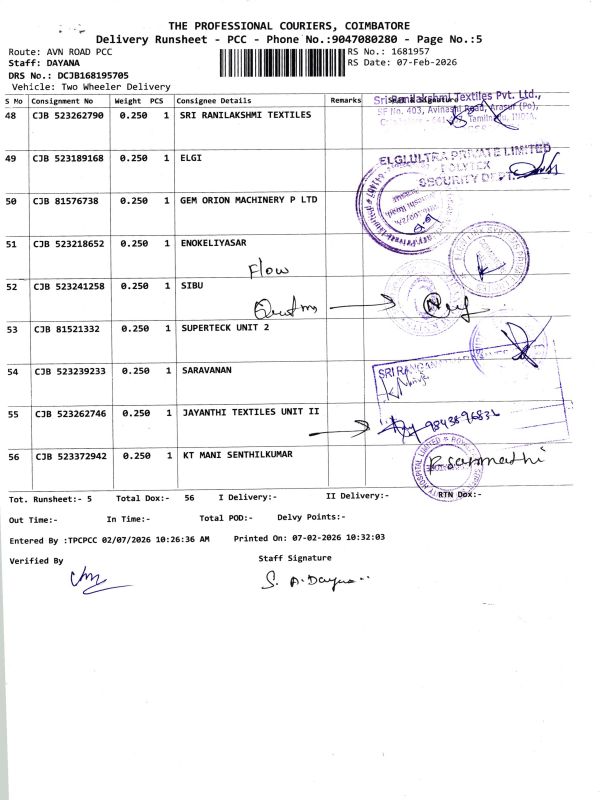 THE PROFESSIONAL COURIERS, COIMBATORE
Delivery Runsheet - PCC - Phone No.:9047080280 - Page No.:5
Route: AVN ROAD PCC
RS No.: 1681957
Staff: DAYANA
RS Date: 07-Feb-2026
DRS No.: DCJB168195705
Vehicle: Two Wheeler Delivery
S No Consignment No Weight PCS Consignee Details Remarks
48 CJB 523262790 0.250 1 SRI RANILAKSHMI TEXTILES
Sri Ranilakshmi Textiles Pvt. Ltd.,
SF No. 403, Avinashi Road, Arasur (Po),
Tamilnadu, INDIA.
49 CJB 523189168 0.250 1 ELGI
ELGI ULTRA PRIVATE LIMITED
SECURITY DEPT.
50 CJB 81576738 0.250 1 GEM ORION MACHINERY P LTD
51 CJB 523218652 0.250 1 ENOKELIYASAR
Flow
52 CJB 523241258 0.250 1 SIBU
53 CJB 81521332 0.250 1 SUPERTECK UNIT 2
54 CJB 523239233 0.250 1 SARAVANAN
55 CJB 523262746 0.250 1 JAYANTHI TEXTILES UNIT II
56 CJB 523372942 0.250 1 KT MANI SENTHILKUMAR
Tot. Runsheet:- 5 Total Dox:- 56 I Delivery:- II Delivery:- RTN Dox:-
Out Time:- In Time:- Total POD:- Delvy Points:-
Entered By :TPCPCC 02/07/2026 10:26:36 AM Printed On: 07-02-2026 10:32:03
Verified By Staff Signature